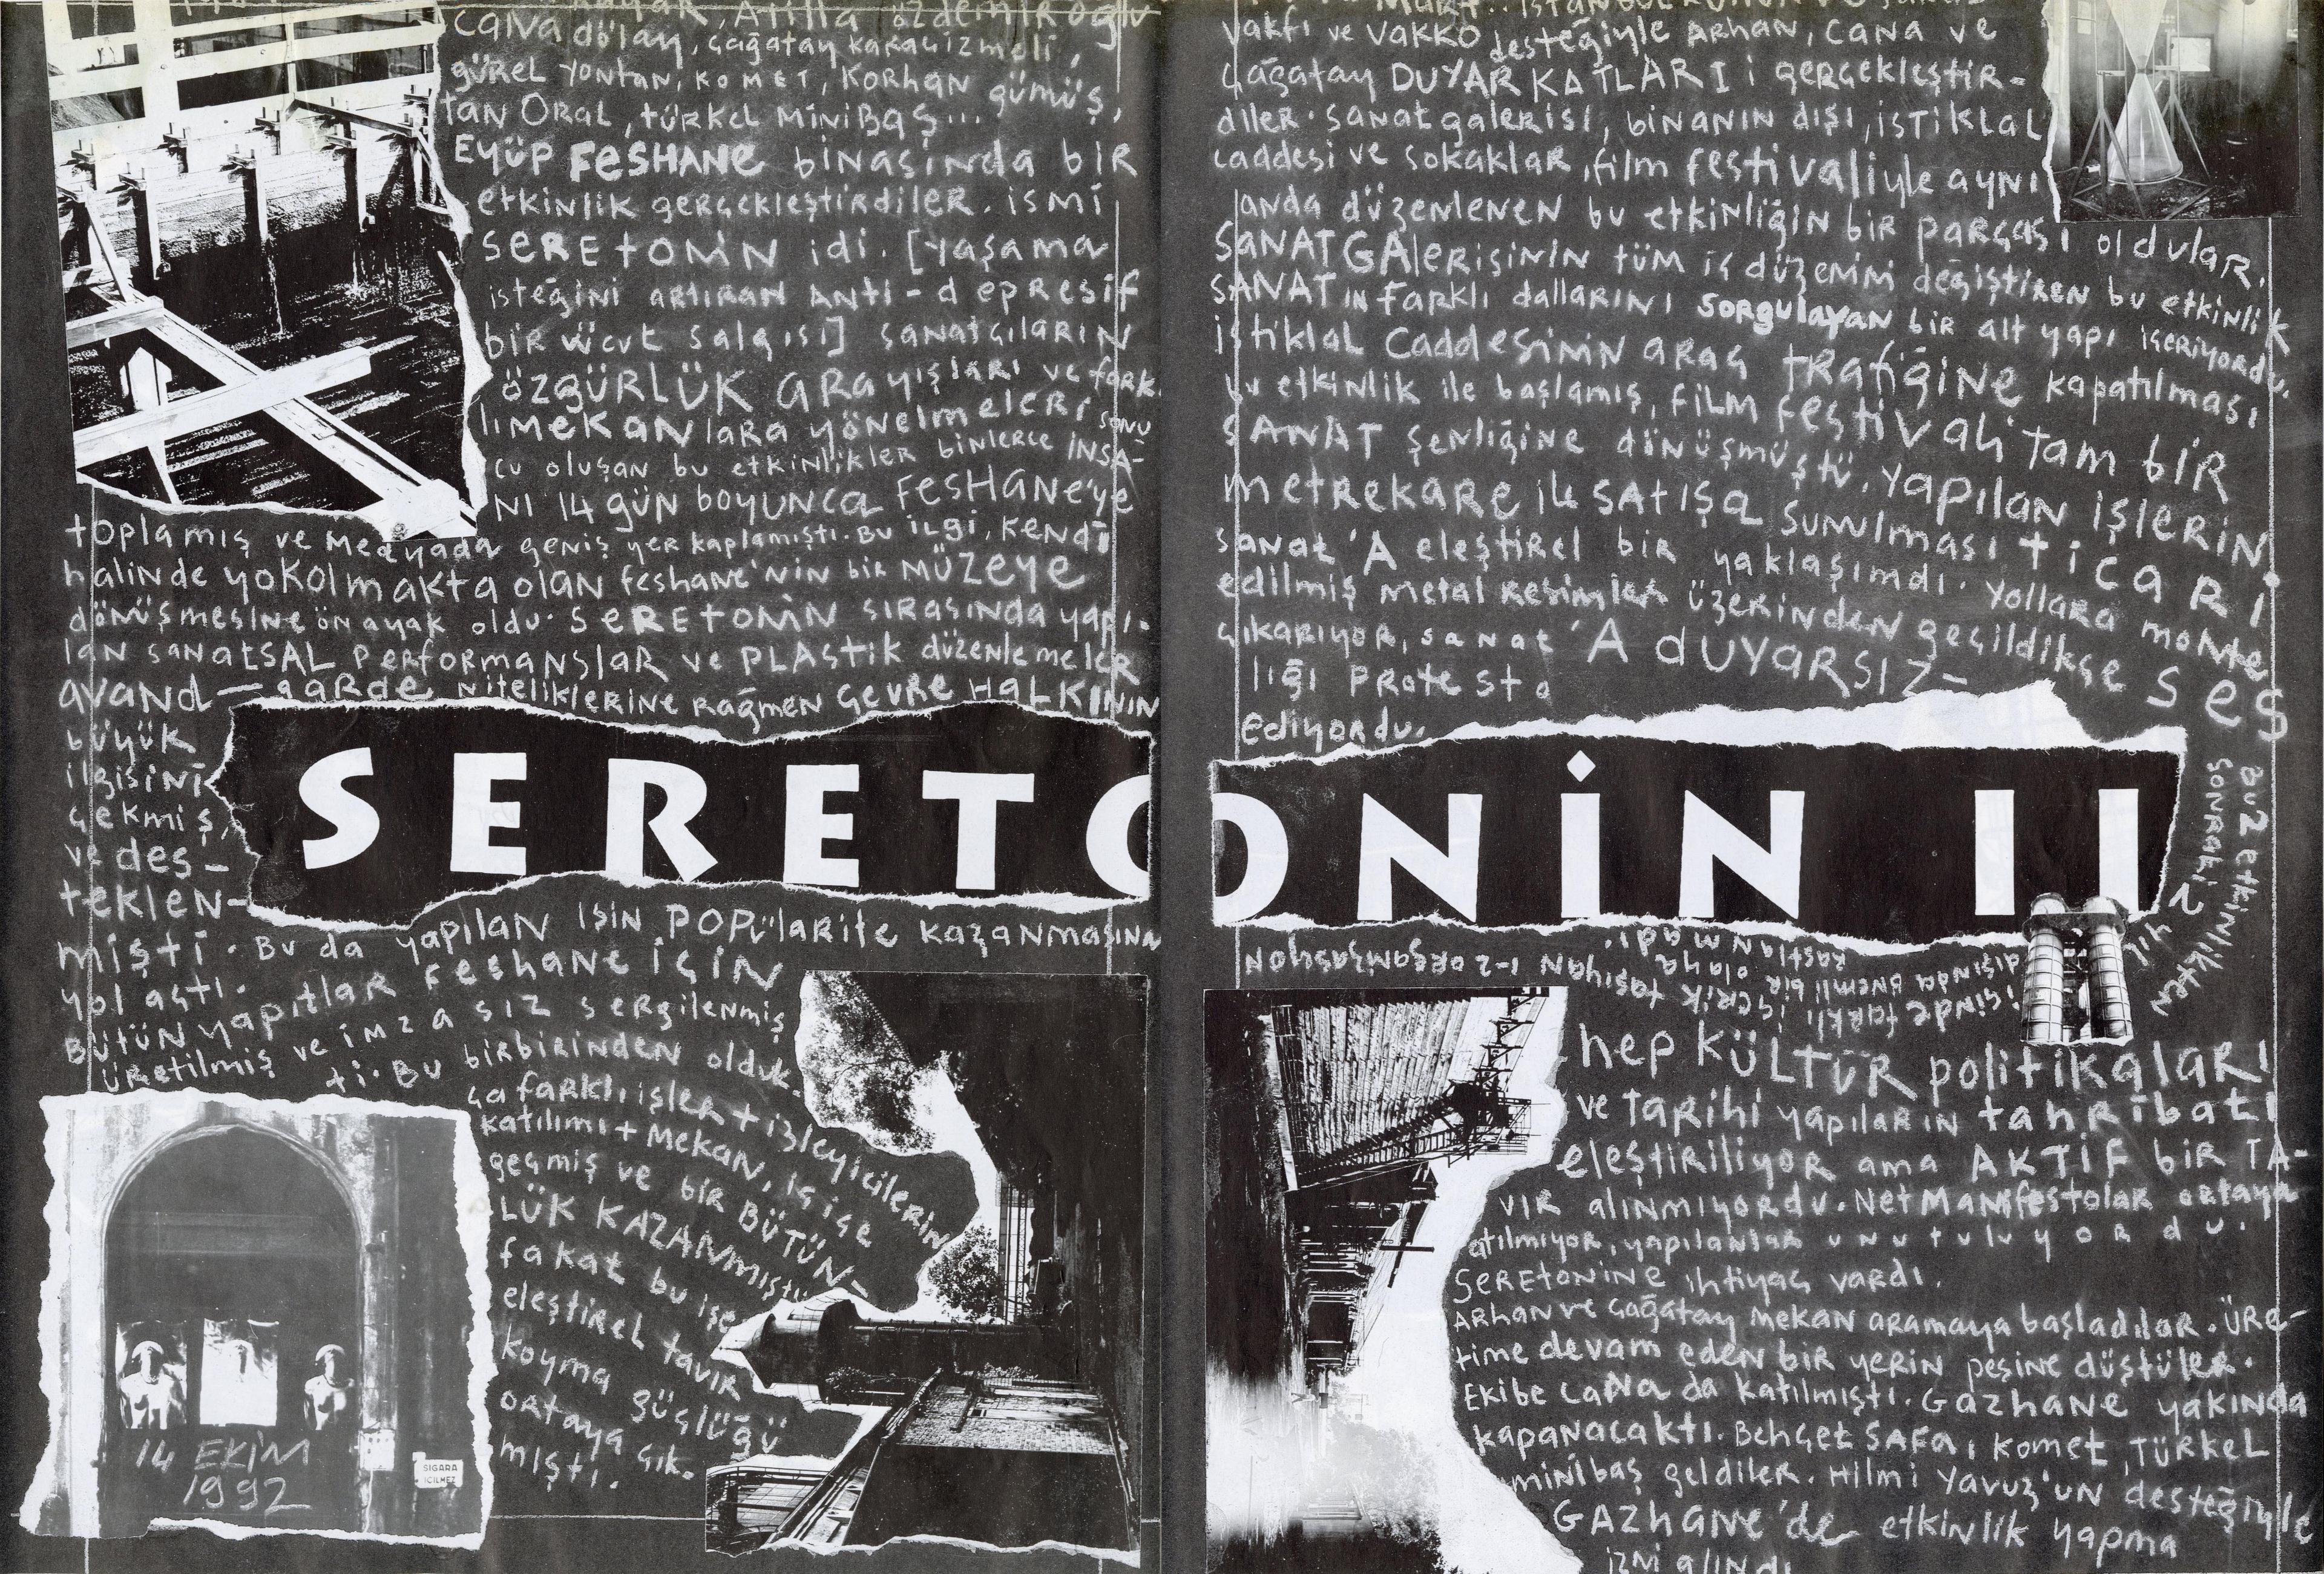 Atilla özdemiroğlu
cana dölay, çağatay karagizmeli,
gürel yontan, komet, korhan gümüş,
tan Oral, türkel minibaş...
Eyüp FESHANE binasında bir
etkinlik gerçekleştirdiler. ismi
SERETONİN idi. [yaşama
isteğini artıran anti-depresif
bir vücut salgısı] sanatçıların
özgürLük arayışları ve fark-
lı mekanlara yönelmeleri sonu
cu oluşan bu etkinlikler binlerce insa-
nı 14 gün boyunca FESHANE'ye
toplamış ve Medyada geniş yer kaplamıştı. Bu ilgi, kendi
halinde yokolmakta olan feshane'nin bir müzeye
dönüşmesine önayak oldu. SERETONİN sırasında yapı-
lan sanatsal performanslar ve plastik düzenlemeler
avand-garde niteliklerine rağmen çevre HALKININ
büyük
ilgisini
çekmiş,
ve des-
teklen-
mişti. Bu da yapılan işin popülarite kazanmasına
yol açtı.
Bütün yapıtlar feshane için
üretilmiş ve imzasız sergilenmiş
ti. Bu birbirinden olduk-
ça farklı işler + izleyicilerin
katılımı + Mekan, iç içe
geçmiş ve bir BÜTÜN-
LÜK KAZANMIŞTI
fakat bu işe
eleştirel tavır
koyma güçlüğü
ortaya çık-
mıştı.
14 EKİM
1992
SİGARA
İÇİLMEZ
SERETONİN II
Mart.. istanbul
vakfı ve vakko desteğiyle Arhan, Cana ve
Çağatay DUYARKATLARI i gerçekleştir-
diler. sanat galerisi, binanın dışı, istiklal
caddesi ve sokaklar, film festivaliyle aynı
anda düzenlenen bu etkinliğin bir parçası oldular.
SANAT GAlerisinin tüm iç düzenini değiştiren bu etkinlik
SANATın farklı dallarını sorgulayan bir alt yapı içeriyordu.
istiklal Caddesinin araç trafiğine kapatılması
bu etkinlik ile başlamış, film festivali tam bir
SANAT şenliğine dönüşmüştü. yapılan işlerin
metrekare ile satışa sunulması ticari
sanat'A eleştirel bir yaklaşımdı. yollara monte
edilmiş metal resimler üzerinden geçildikçe ses
çıkarıyor, sanat'A DUYARSIZ-
lığı protesto
ediyordu.
Bu 2 etkinlikten
sonraki 2
yıl
içinde farklı içerik taşıyan 1-2 organizasyon
dışında önemli bir olaya
rastlanmadı.
hep KÜLTÜR politikaları
ve tarihi yapıların tahribatı
eleştiriliyor ama AKTİF bir TA-
VIR alınmıyordu. Net Manifestolar ortaya
atılmıyor, yapılanlar unutuluyordu.
SERETONİNE ihtiyaç vardı.
Arhan ve Çağatay mekan aramaya başladılar. Üre-
time devam eden bir yerin peşine düştüler.
Ekibe Cana da katılmıştı. Gazhane yakında
kapanacaktı. Behçet SAFA, Komet, Türkel
minibaş geldiler. Hilmi Yavuz'un desteğiyle
GAZHANE'de etkinlik yapma
izni alındı